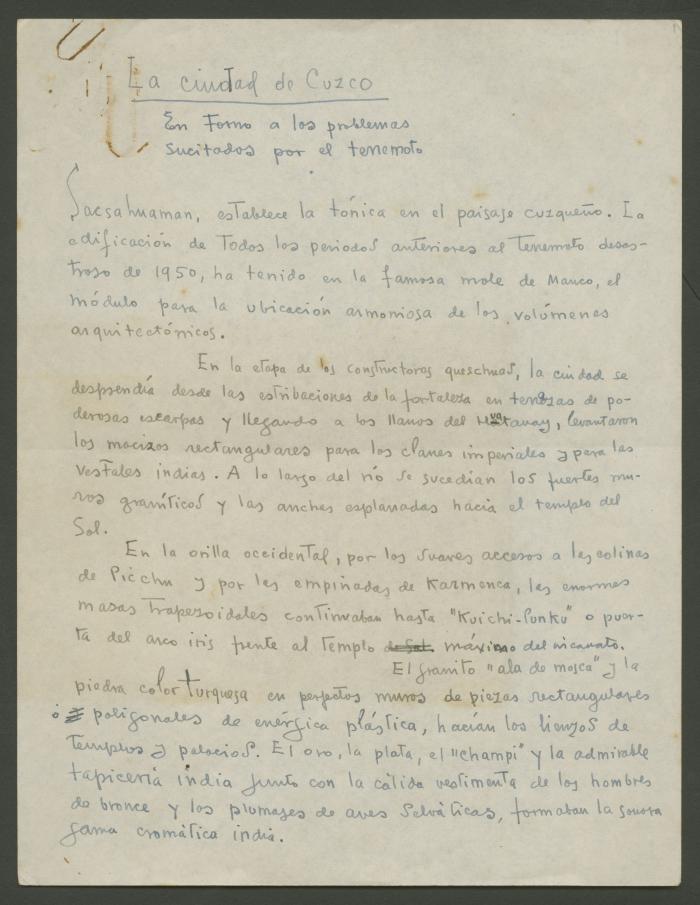 La ciudad de Cuzco
En Torno a los problemas
sucitados por el terremoto
Sacsahuaman, establece la tónica en el paisaje cuzqueño. La
edificación de Todos los periodos anteriores al Terremoto desas-
troso de 1950, ha tenido en la famosa mole de Manco, el
módulo para la ubicación armoniosa de los volúmenes
arquitectónicos.
En la etapa de los constructores queschuas, la ciudad se
desprendía desde las estribaciones de la fortaleza en terrazas de po-
derosas escarpas y llegando a los llanos del Huatanay, levantaron
los macizos rectangulares para los clanes imperiales y para las
vestales indias. A lo largo del río se sucedían los fuertes mu-
ros graníticos y las anchas esplanadas hacia el templo del
Sol.
En la orilla occidental, por los suaves accesos a las colinas
de Picchu y por las empinadas de Karmenca, las enormes
masas Trapezoidales continuaban hasta "Kuichi-Punku" o puer-
ta del arco iris frente al Templo de Sol. máximo del incanato.
El granito "ala de mosca" y la
piedra color turquesa en perfectos muros de piezas rectangulares
ó poligonales de enérgica plástica, hacían los lienzos de
Templos y palacios. El oro, la plata, el "champi" y la admirable
tapicería india junto con la cálida vestimenta de los hombres
de bronce y los plumajes de aves selváticas, formaban la sonora
gama cromática india.